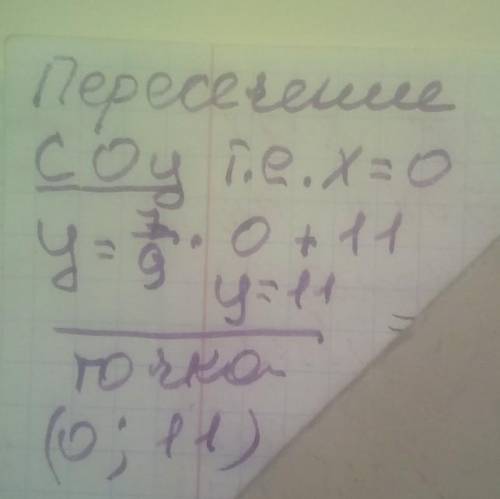 Пересечение
С Оу т.е. x = 0
y = 7/9 · 0 + 11
y = 11
=
точка
(0; 11)